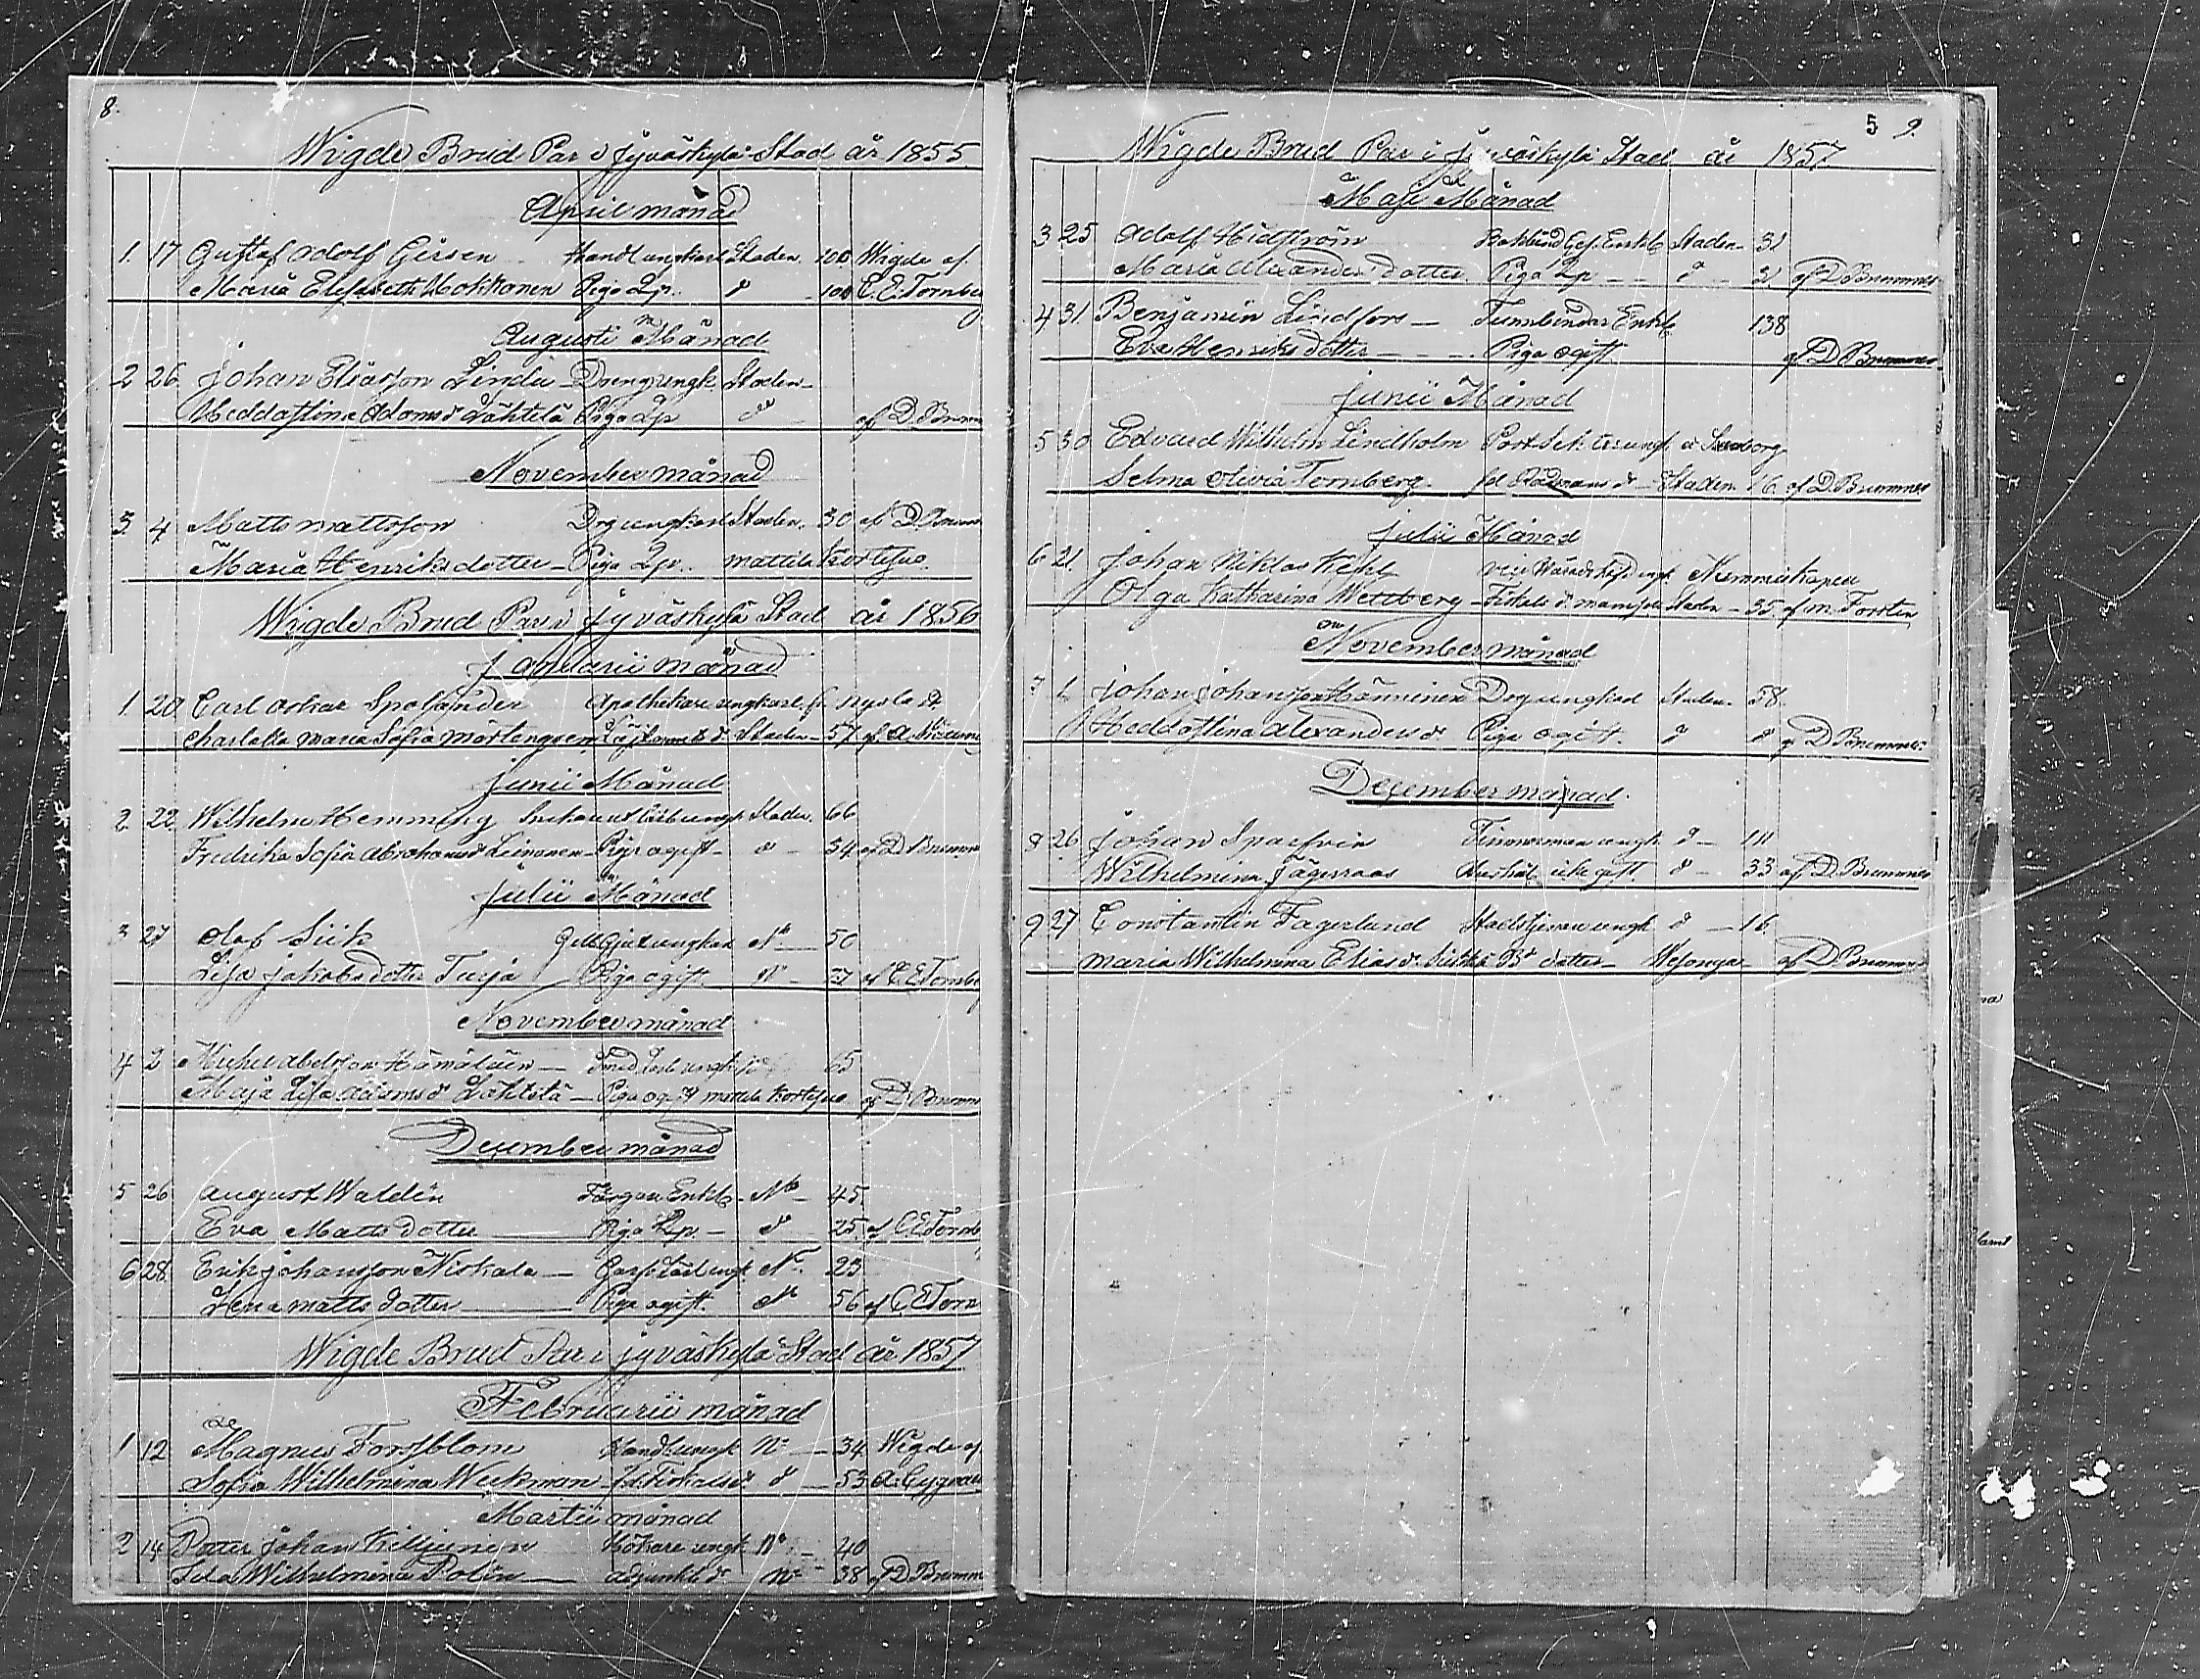 8.
Wigde Brud Par i Jyväskylä Stad år 1855
April månad
1. 17 Gustaf Adolf Gersen Handl ungkarl Staden 100 Wigde af
Maria Elisabeth Hokkanen Piga Lp. d 100 C. E. Tornberg
Augusti Månad
2 26 Johan Eliasson Linde Drengungk Staden
Heddastina Adams d Lähtelä Piga Lp af D. Brumme
November månad
3. 4 Matts Mattsson Drg ungkarl Staden. 30 af D Brumm
Maria Henriksdotter Piga Lp. Mattila Kortesuo.
Wigde Brud Par i Jyväskylä Stad år 1856
Januarii månad
1. 20 Carl Oskar Spolander Apothekare ungkarl fr. Nyslott
Charlotta Maria Sofia Mårtengren d Staden 57 af A.
Junii Månad
2. 22 Wilhelm Hemming ungk Staden. 66
Fredrika Sofia Abrahams d Leinonen Piga ogift d 34 af D Brumm
Julii Månad
3 27 Olof Siik ungkar No 50
Lisa Jakobs dotter Turja Piga ogift. No 37 af C. E Tornbe
November månad
4 2 Michel Abelsson Hämäläin ungk 65
Maja Lisa Adams d Lähtelä Piga og. Mattila Kortesuo af D Brumm
December månad
5 26 August Waldén Färgare Enkl. No 45
Eva Mattsdotter Piga Lp. d 25. af C. E Tornb
6 28. Erik Johansson Niskala ungk No. 23
Lena Matts dotter Piga ogift. No 56 af C. E Torn
Wigde Brud Par i Jyväskylä Stad år 1857
Februarii månad
1 12 Magnus Forsblom Handl ungk No 34 Wigde af
Sofia Wilhelmina Weckman fd. Fiskals d d 53 A. Cygnaeu
Martii månad
2 14 Petter Johan Kiljunen Hökare ungk No 40
Wilhelmina Polén Adjunkts d No 38 af D Brumm
5 9.
Wigde Brud Par i Jyväskylä Stad år 1857
Maji Månad
3 25 Adolf Hidström Bokbind Ges. Enkl Staden 31
Maria Alexanders dotter Piga Lp d 31 af D Brummer
4 31. Benjamin Lindfors Tunnbindar Enkl 138
Eva Henriks dotter Piga ogift af D Brummer
Junii Månad
5 30 Edvard Wilhelm Lindholm Post Sek ungk
Selma Olivia Tornberg. fd Rådmans d Staden 16. af D. Brummer
Julii Månad
6 21. Johan Niklas Kehl ungk
Olga Katharina Wettberg Fiskals d mamsell Staden 35. af M. Forsten
November månad
7 1. Johan Johansson Hänninen Drg ungkarl Staden. 58.
Heddastina Alexanders d. Piga ogift. d d af D Brummer
December månad.
8 26 Johan Sparfvin Timmerman ungk d
Wilhelmina Jägerroos icke gift. d 33 af D. Brummer
9 27 Constantin Fagerlund Stadstjenare ungk d 16.
Maria Wilhelmina Elias d. Siekkä Bd dotter Wesanga af D. Brummer